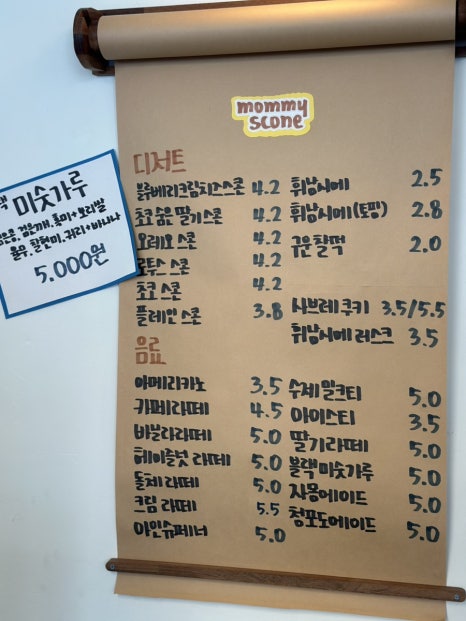 mommy
scone
디저트
블루베리크림치즈스콘 4.2
초코숨은딸기스콘 4.2
오레오 스콘 4.2
로투스 스콘 4.2
초코 스콘 4.2
플레인 스콘 3.8
휘낭시에 2.5
휘낭시에(토핑) 2.8
구운찰떡 2.0
사브레쿠키 3.5/5.5
휘낭시에 러스크 3.5
음료
아메리카노 3.5
카페라떼 4.5
바닐라라떼 5.0
헤이즐넛 라떼 5.0
돌체라떼 5.0
크림 라떼 5.5
아인슈페너 5.0
수제밀크티 5.0
아이스티 3.5
딸기라떼 5.0
블랙미숫가루 5.0
자몽에이드 5.0
청포도에이드 5.0
미숫가루
검은깨, 흑미+보리쌀
율무, 찰현미, 귀리+바나나
5.000원